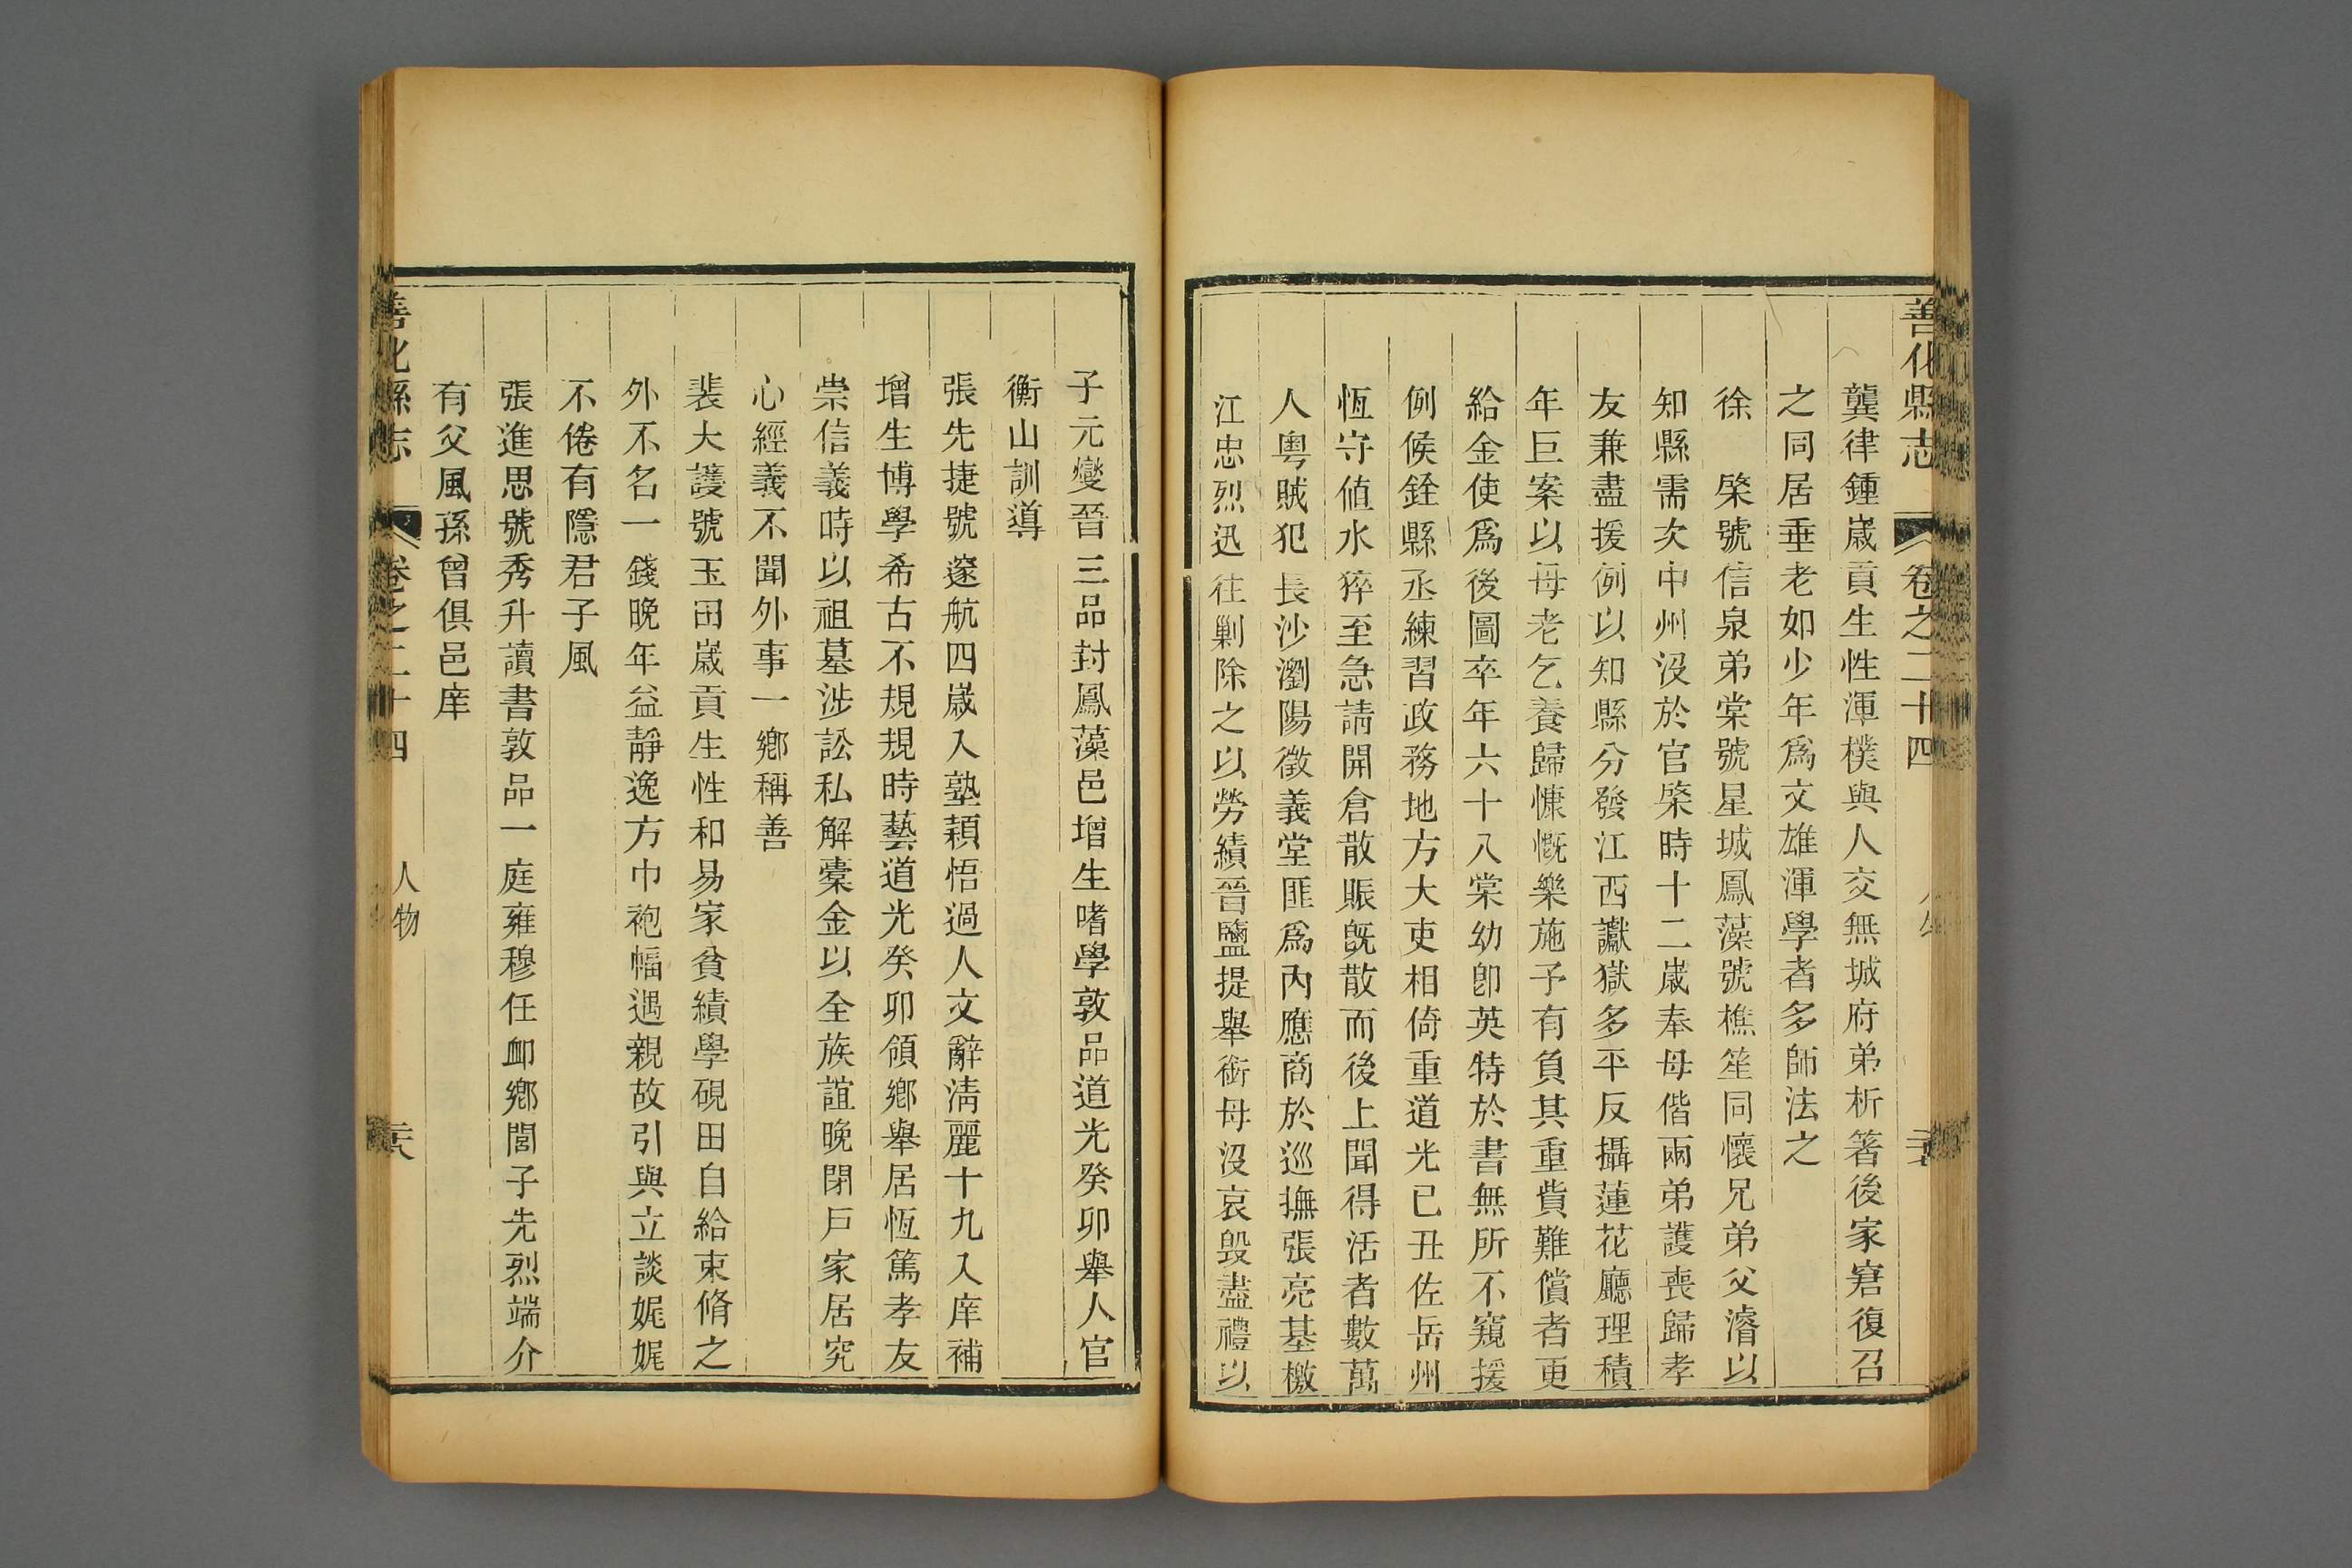 善化縣志
卷之二十四
龔律鍾歲貢生性渾樸與人交無城府弟析箸後家窘復召
之同居垂老如少年爲文雄渾學者多師法之
徐　棨號信泉弟棠號星城鳳藻號樵笙同懷兄弟父濬以
知縣需次中州沒於官棨時十二歲奉母偕兩弟護喪歸孝
友兼盡援例以知縣分發江西讞獄多平反攝蓮花廳理積
年巨案以母老乞養歸慷慨樂施予有負其重貲難償者更
給金使爲後圖卒年六十八棠幼卽英特於書無所不窺援
例候銓縣丞練習政務地方大吏相倚重道光己丑佐岳州
恆守値水猝至急請開倉散賑旣散而後上聞得活者數萬
人粵賊犯長沙瀏陽徵義堂匪爲內應商於巡撫張亮基檄
江忠烈迅往剿除之以勞績晉鹽提舉銜母沒哀毀盡禮以
子元燮晉三品封鳳藻邑增生嗜學敦品道光癸卯舉人官
衡山訓導
張先捷號邃航四歲入塾穎悟過人文辭清麗十九入庠補
增生博學希古不規規時藝道光癸卯領鄉舉居恆篤孝友
崇信義時以祖墓涉訟私解橐金以全族誼晚閉戶家居究
心經義不聞外事一鄉稱善
裴大護號玉田歲貢生性和易家貧績學硯田自給束脩之
外不名一錢晚年益靜逸方巾袍幅遇親故引與立談娓娓
不倦有隱君子風
張進思號秀升讀書敦品一庭雍穆任卹鄉閭子先烈端介
有父風孫曾俱邑庠
善化縣志
卷之二十四
人物